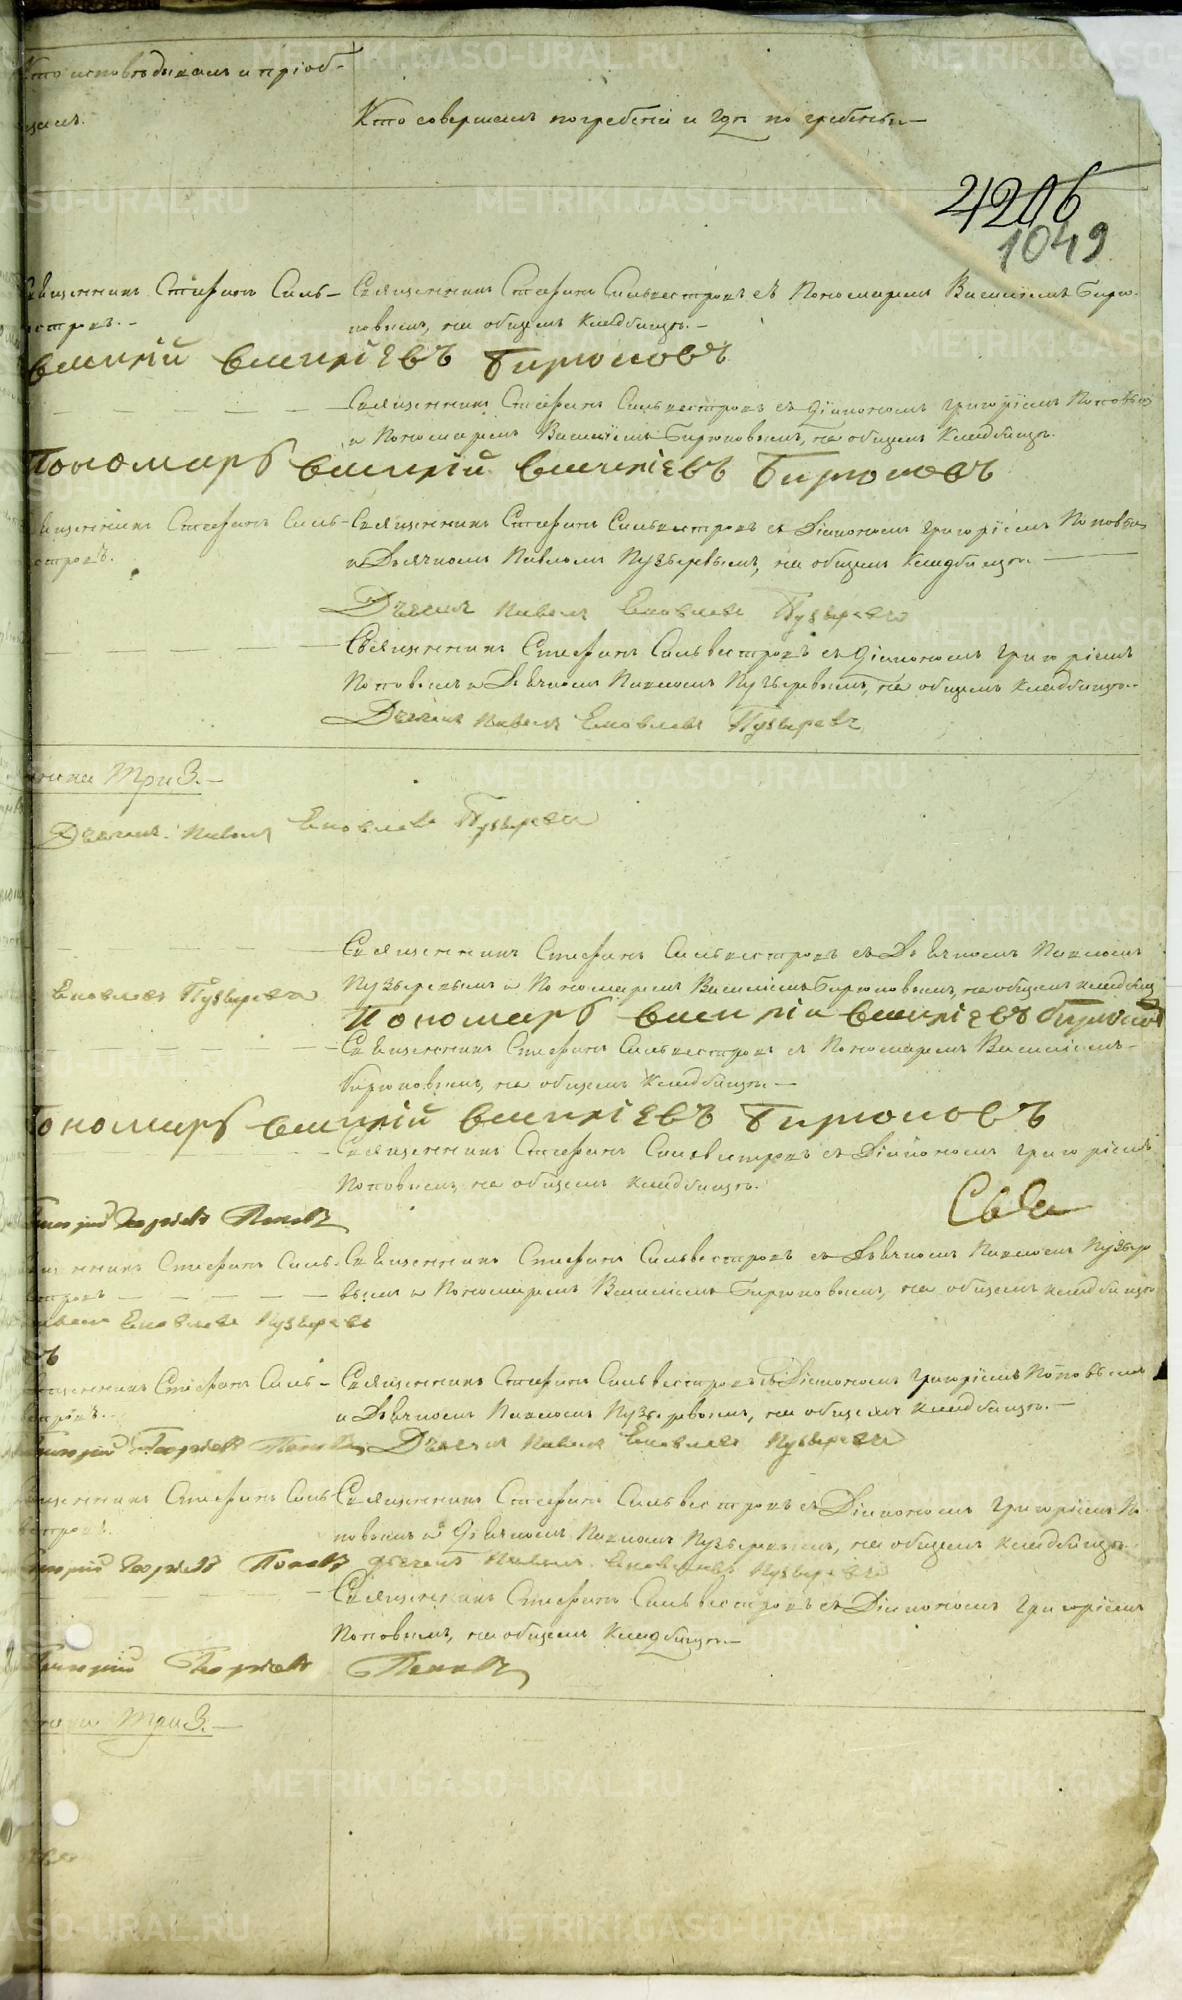 Кто исповѣдывалъ и пріоб-
щалъ.
Кто совершалъ погребеніе и гдѣ погребены.
4206
1049
Священникъ Стефанъ Силь-
вестровъ.
Священникъ Стефанъ Сильвестровъ съ Пономаремъ Василіемъ Бирю-
ковымъ, на общемъ кладбищѣ.
Василій Василіевъ Бирюковъ
Священникъ Стефанъ Сильвестровъ съ Діакономъ Григоріемъ Поповымъ
и Пономаремъ Василіемъ Бирюковымъ, на общемъ кладбищѣ.
Пономарь Василій Василіевъ Бирюковъ
Священникъ Стефанъ Силь-
вестровъ.
Священникъ Стефанъ Сильвестровъ съ Діакономъ Григоріемъ Поповымъ
и Дьячкомъ Павломъ Пузыревымъ, на общемъ кладбищѣ.
Дьячекъ Павелъ Яковлевъ Пузыревъ
Священникъ Стефанъ Сильвестровъ съ Діакономъ Григоріемъ
Поповымъ и Дьячкомъ Павломъ Пузыревымъ, на общемъ кладбищѣ.
Дьячекъ Павелъ Яковлевъ Пузыревъ
три 3.
Дьячекъ Павелъ Яковлевъ Пузыревъ
Священникъ Стефанъ Сильвестровъ съ Дьячкомъ Павломъ
Пузыревымъ и Пономаремъ Василіемъ Бирюковымъ, на общемъ кладбищѣ
Яковлевъ Пузыревъ
Пономарь Василій Василіевъ Бирюковъ
Священникъ Стефанъ Сильвестровъ съ Пономаремъ Василіемъ
Бирюковымъ, на общемъ кладбищѣ.
Пономарь Василій Василіевъ Бирюковъ
Священникъ Стефанъ Сильвестровъ съ Діакономъ Григоріемъ
Поповымъ, на общемъ кладбищѣ.
Григорій Георгіевъ Поповъ
Священникъ Стефанъ Силь-
вестровъ
Священникъ Стефанъ Сильвестровъ съ Дьячкомъ Павломъ Пузыре-
вымъ и Пономаремъ Василіемъ Бирюковымъ, на общемъ кладбищѣ
Павелъ Яковлевъ Пузыревъ
Священникъ Стефанъ Силь-
вестровъ.
Священникъ Стефанъ Сильвестровъ съ Діакономъ Григоріемъ Поповымъ
и Дьячкомъ Павломъ Пузыревымъ, на общемъ кладбищѣ.
Григорій Георгіевъ Поповъ Дьячекъ Павелъ Яковлевъ Пузыревъ
Священникъ Стефанъ Силь-
вестровъ.
Священникъ Стефанъ Сильвестровъ съ Діакономъ Григоріемъ По-
повымъ и Дьячкомъ Павломъ Пузыревымъ, на общемъ кладбищѣ.
Григорій Георгіевъ Поповъ Дьячекъ Павелъ Яковлевъ Пузыревъ
Священникъ Стефанъ Сильвестровъ съ Діакономъ Григоріемъ
Поповымъ, на общемъ кладбищѣ.
Григорій Георгіевъ Поповъ
три 3.
METRIKI.GASO-URAL.RU